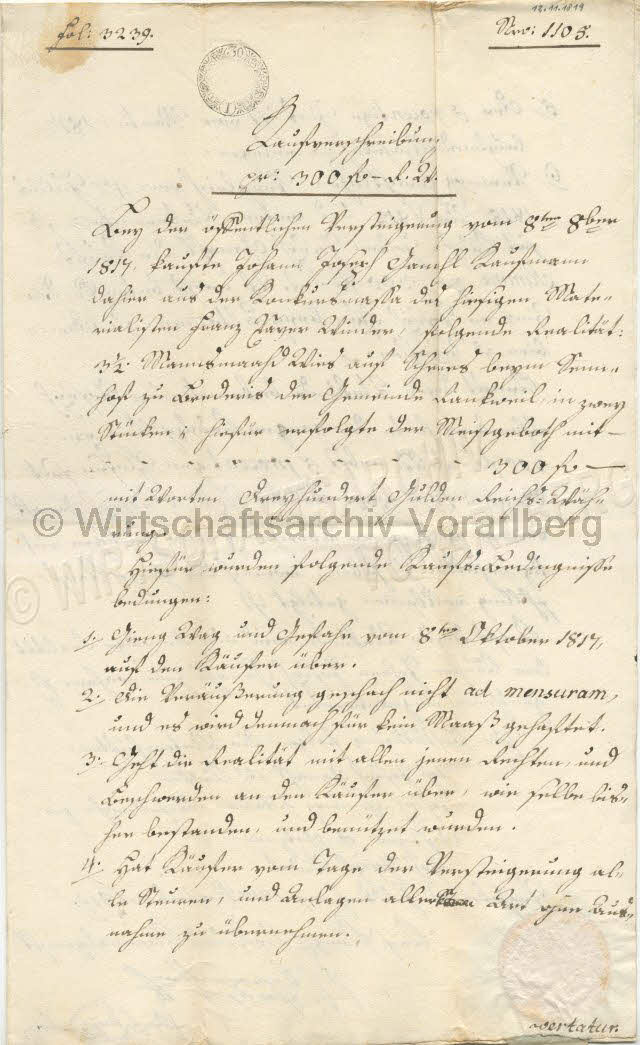 13.11.1819
Fol: 3239.
Nro: 1105.
30
1
Kaufverschreibung
pr: 300 fl – R. W.
Bey der öffentlichen Versteigerung vom 8ten 8ber
1817. kaufte Johann Joseph Ganahl Kaufmann
dahier aus der Konkursmassa des hiesigen Mate-
rialisten Franz Xaver Winder, folgende Realität:
3½ Mannsmahd Wies auf beym
hof zu Brederis der Gemeinde Rankweil in zwey
Stücken; hiefür erfolgte der Meistgeboth mit –
300 fl –
mit Worten Dreyhundert Gulden Reichs-Wäh-
rung.
© Wirtschaftsarchiv Vorarlberg
Hiefür wurden folgende Kaufs-Bedingnisse
bedungen:
1. Gieng Wag und Gefahr vom 8ten Oktober 1817,
auf den Käufer über.
2. Die Veräußerung geschach nicht ad mensuram,
und es wird demnach für kein Maaß gehaftet.
3. Geht die Realität mit allen jenen Rechten, und
Beschwerden an den Käufer über, wie selbe bis-
her bestanden, und benützet wurden.
4. Hat Käufer vom Tage der Versteigerung al-
le Steuren, und Anlagen aller Art ohne Aus-
nahme zu übernehmen.
vertatur.